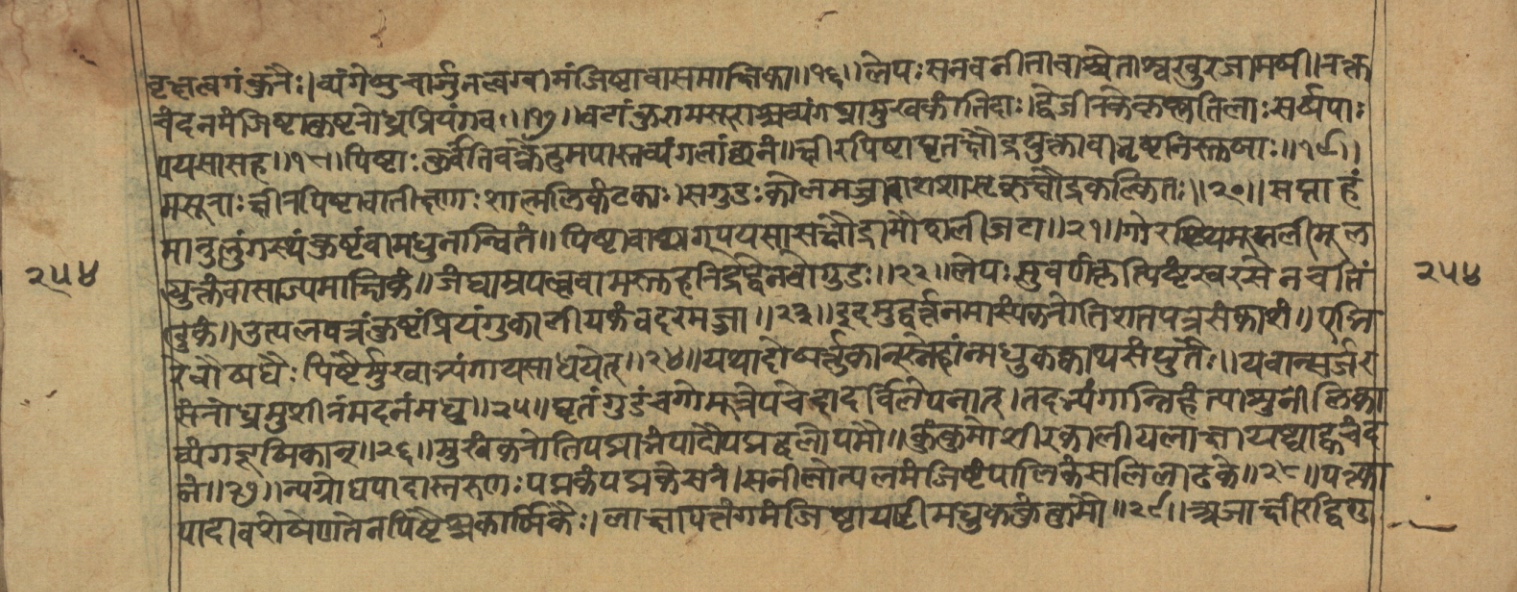 वृत्तत्वगंकुरैः। व्यंगेषुचार्जुनत्वग्वामंजिष्टावासमाक्षिका॥१६॥ लेपः सनवनीतावाश्वेताश्वखुरजामषी। रक्त
चंदनमंजिष्टाकुष्टलोध्रप्रियंगवः॥१७॥ वटांकुरामसूराश्चव्यंगघ्नामुखकांतिदाः। द्वेजीरकेकृष्णतिलाः सर्षपाः
पयसासह॥१८॥ पिष्टाः कुर्वंतिवक्त्रेंदुमपास्तव्यंगलांछनं॥ क्षीरपिष्टाघृतक्षौद्रयुक्तावाभृष्टनिस्तुषाः॥१९॥
मसूराः क्षीरपिष्टावातीक्ष्णाः शाल्मलिकंटकाः। सगुडः कोलमज्जावाशशासृक्क्षौद्रकल्कितः॥२०॥ सप्ताहं
मातुलुंगस्थंकुष्टंवामधुनान्वितं॥ पिष्टावाछागपयसासक्षौद्रामौशलीजटा॥२१॥ गोरस्थिमुसलीमूल
युक्तंवासाज्यमाक्षिकं॥ जंब्वाम्रपल्लवामस्तुहरिद्रेद्वेनवोगुडः॥२२॥ लेपः सुवर्णकृत्पिष्टंस्वरसेनचतिं
दुकं॥ उत्पलपत्रंकुष्टंप्रियंगुकालीयकंबदरमज्जा॥२३॥ इदमुद्वर्त्तनमास्यंकरोतिशतपत्रसंकाशं॥ एभि
रेवौषधैः पिष्टैर्मुखाभ्यंगायसाधयेत्॥२४॥ यथादोषर्त्तुकान्स्नेहान्मधुकक्वाथसंयुतैः॥ यवान्सर्जर
संलोध्रमुशीरंमदनंमधु॥२५॥ घृतंगुडंचगोमूत्रेपचेदादर्विलेपनात्। तदभ्यंगान्निहंत्याशुनीलिका
व्यंगदूषिकान्॥२६॥ मुखंकरोतिपद्माभंपादौपद्मदलोपमौ॥ कुंकुमोशीरकालीयलाक्षायष्ट्याह्वचंद
नं॥२७॥ न्यग्रोधपादास्तरुणाः पद्मकंपद्मकेसरं। सनीलोत्पलमंजिष्टंपालिकंसलिलाढके॥२८॥ पक्त्वा
पादावशेषेणतेनपिष्टैश्चकार्षिकैः। लाक्षापत्तंगमंजिष्टायष्टीमधुककुंकुमैः॥२९॥ अजाक्षीरद्विगु
२५४
२५४